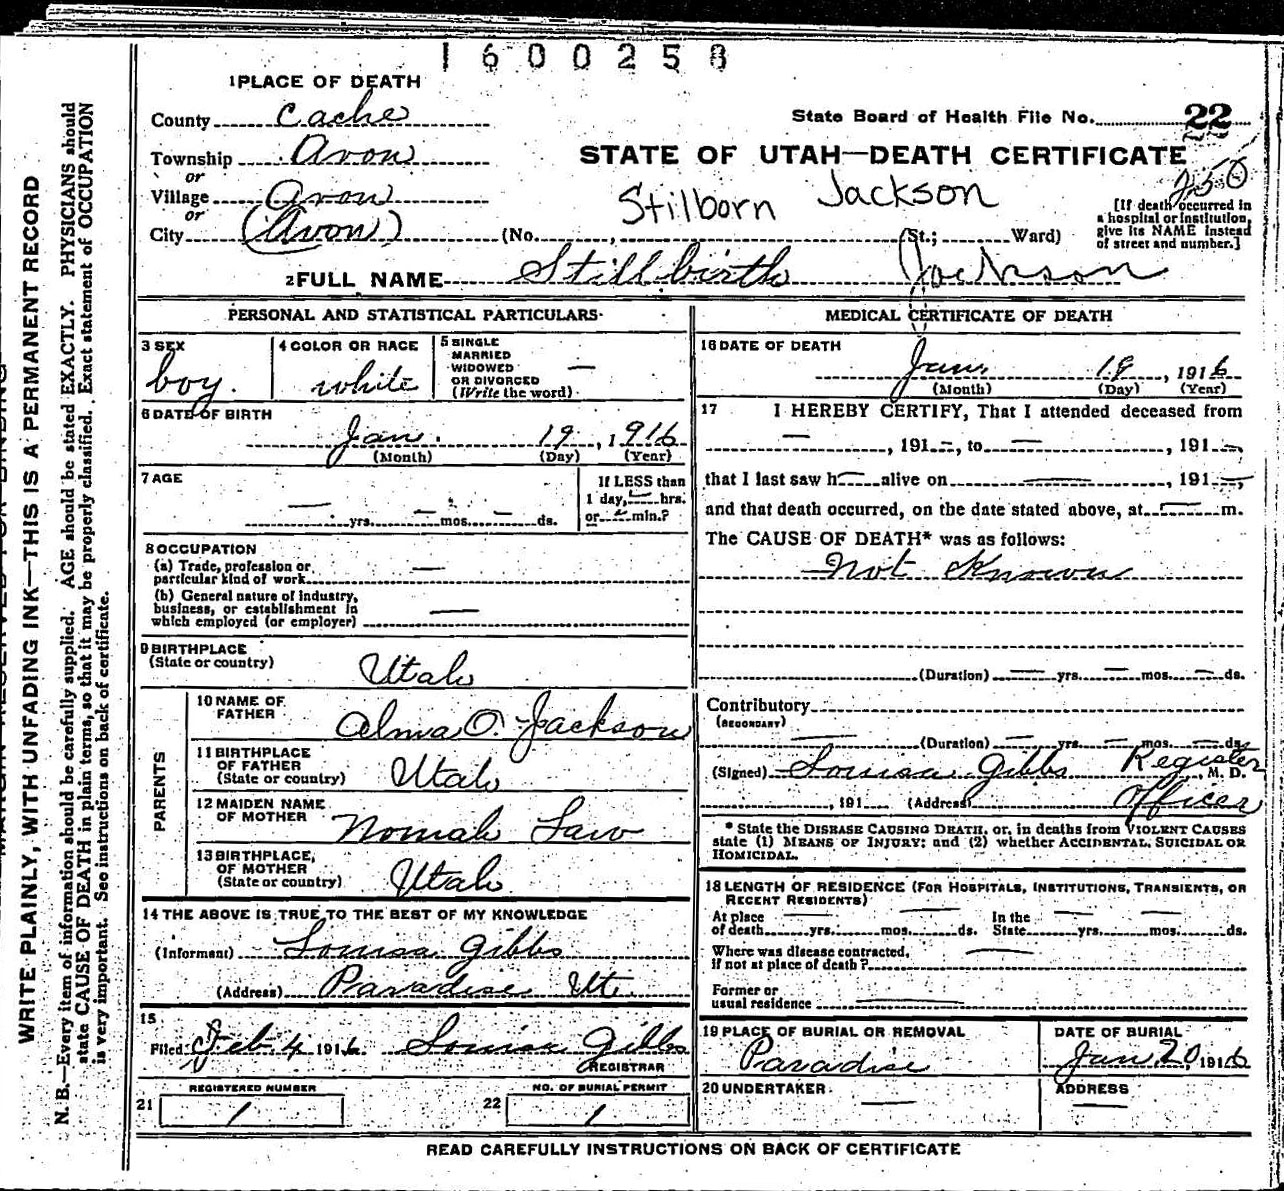 1600258
1 PLACE OF DEATH
County Cache
State Board of Health File No. 22
Township Avon
or
STATE OF UTAH—DEATH CERTIFICATE
Village Avon
or
Stilborn Jackson
250
[If death occurred in a hospital or institution, give its NAME instead of street and number.]
City (Avon) (No. , St.; Ward)
2 FULL NAME Stillbirth Jackson
PERSONAL AND STATISTICAL PARTICULARS
3 SEX
boy.
4 COLOR OR RACE
white
5 SINGLE
MARRIED
WIDOWED
OR DIVORCED
(Write the word)
—
6 DATE OF BIRTH
Jan. 19, 1916
(Month) (Day) (Year)
7 AGE
— yrs. — mos. ds.
If LESS than
1 day, — hrs.
or — min.?
8 OCCUPATION
(a) Trade, profession or
particular kind of work —
(b) General nature of industry,
business, or establishment in
which employed (or employer) —
9 BIRTHPLACE
(State or country)
Utah
PARENTS
10 NAME OF
FATHER
Alma O. Jackson
11 BIRTHPLACE
OF FATHER
(State or country)
Utah
12 MAIDEN NAME
OF MOTHER
Nomah Law
13 BIRTHPLACE,
OF MOTHER
(State or country)
Utah
14 THE ABOVE IS TRUE TO THE BEST OF MY KNOWLEDGE
(Informant) Louisa Gibbs
(Address) Paradise Ut.
15
Filed Feb. 4 1916. Louisa Gibbs
REGISTRAR
REGISTERED NUMBER
21 1
NO. OF BURIAL PERMIT
22 1
MEDICAL CERTIFICATE OF DEATH
16 DATE OF DEATH
Jan. 19, 1916
(Month) (Day) (Year)
17 I HEREBY CERTIFY, That I attended deceased from
—, 191—, to —, 191—,
that I last saw h— alive on —, 191—,
and that death occurred, on the date stated above, at — m.
The CAUSE OF DEATH* was as follows:
Not Known
(Duration) — yrs. — mos. — ds.
Contributory
(SECONDARY)
— (Duration) — yrs. — mos. — ds.
(Signed) Louisa Gibbs Register, M. D.
, 191 (Address) Officer
* State the DISEASE CAUSING DEATH, or, in deaths from VIOLENT CAUSES
state (1) MEANS OF INJURY; and (2) whether ACCIDENTAL, SUICIDAL OR
HOMICIDAL.
18 LENGTH OF RESIDENCE (FOR HOSPITALS, INSTITUTIONS, TRANSIENTS, OR
RECENT RESIDENTS)
At place
of death yrs. mos. ds.
In the
State yrs. mos. ds.
Where was disease contracted,
if not at place of death?
Former or
usual residence
19 PLACE OF BURIAL OR REMOVAL
Paradise
DATE OF BURIAL
Jan. 20, 1916
20 UNDERTAKER
—
ADDRESS
—
READ CAREFULLY INSTRUCTIONS ON BACK OF CERTIFICATE
WRITE PLAINLY, WITH UNFADING INK—THIS IS A PERMANENT RECORD
N. B.—Every item of information should be carefully supplied. AGE should be stated EXACTLY. PHYSICIANS should
state CAUSE OF DEATH in plain terms, so that it may be properly classified. Exact statement of OCCUPATION
is very important. See instructions on back of certificate.